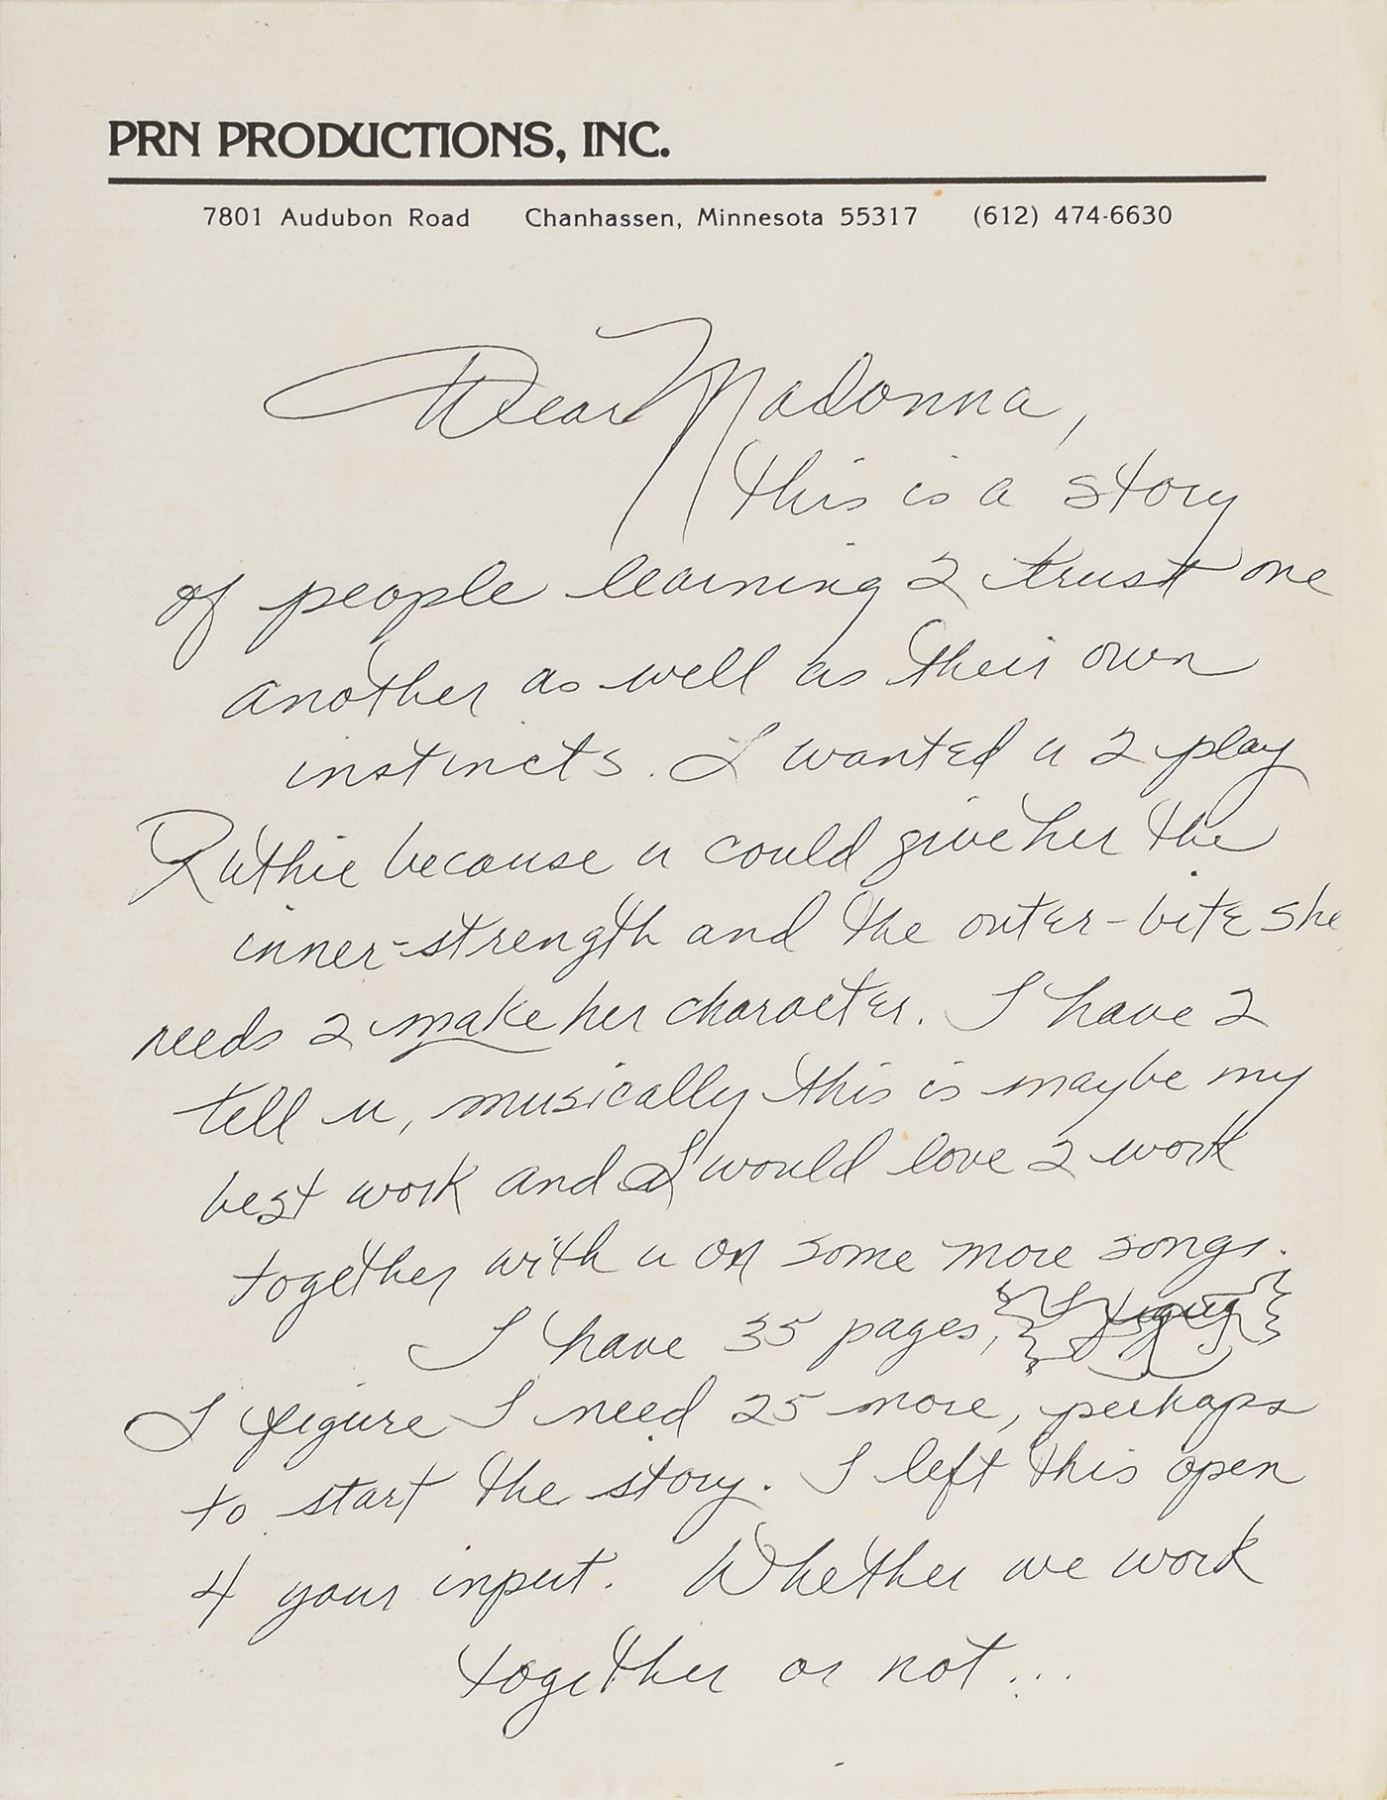 PRN PRODUCTIONS, INC.
7801 Audubon Road Chanhassen, Minnesota 55317 (612) 474-6630
Dear Madonna,
this is a story
of people learning 2 trust one
another as well as their own
instincts. I wanted u 2 play
Ruthie because u could give her the
inner-strength and the outer-bite she
needs 2 make her character. I have 2
tell u, musically this is maybe my
best work and I would love 2 work
together with u on some more songs.
I have 35 pages,
I figure I need 25 more, perhaps
to start the story. I left this open
4 your input. Whether we work
together or not...